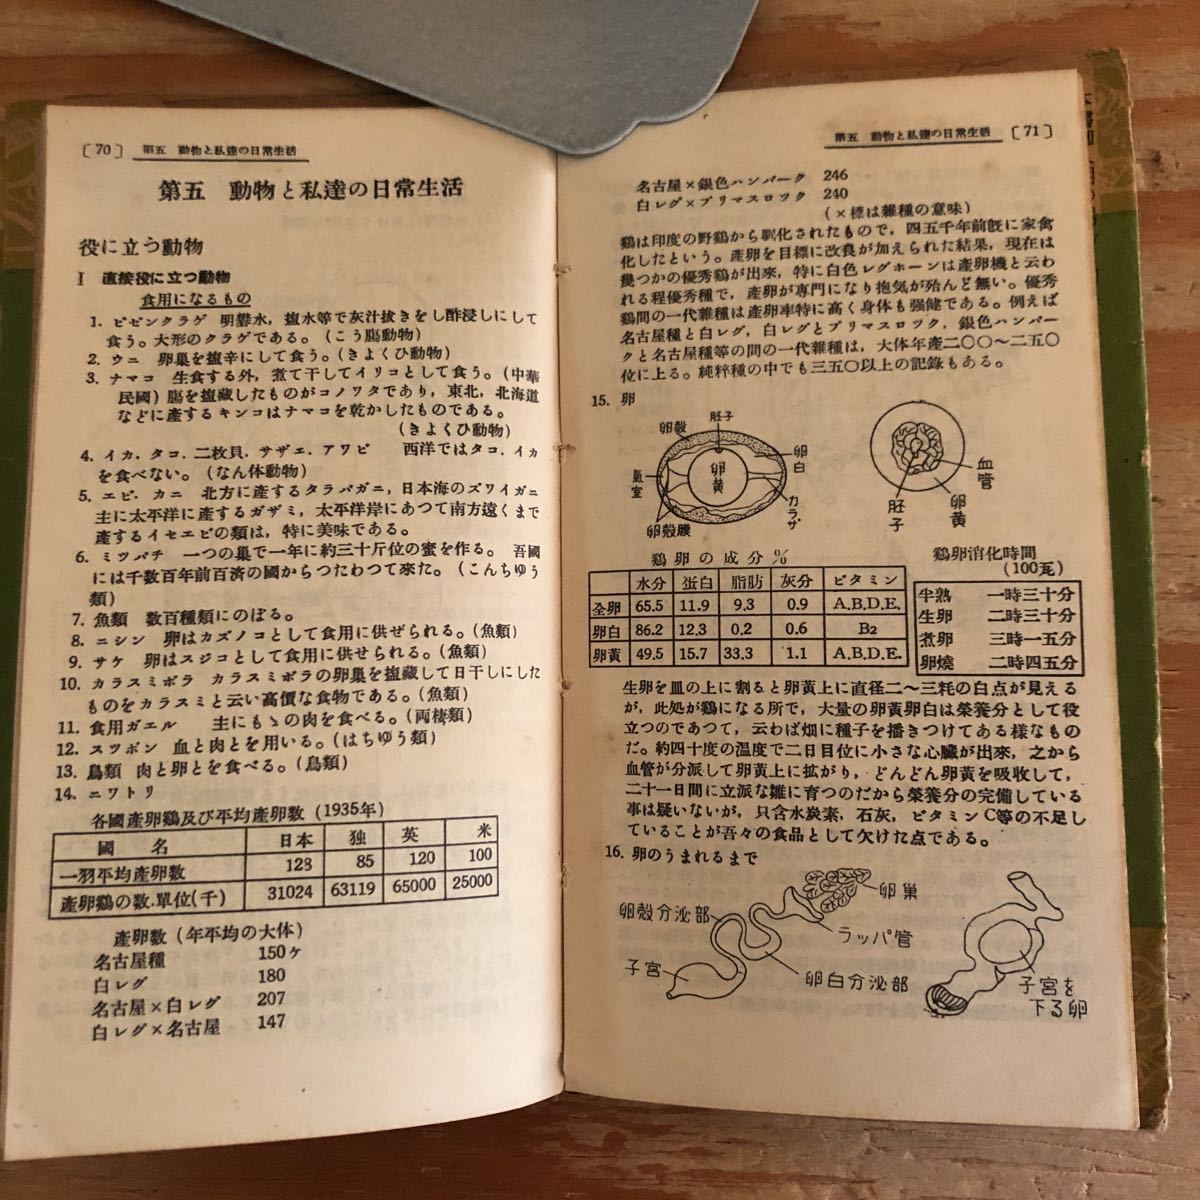 〔70〕 第五 動物と私達の日常生活
第五 動物と私達の日常生活
役に立つ動物
I 直接役に立つ動物
食用になるもの
1. ビゼンクラゲ 明礬水，塩水等で灰汁抜きをし酢浸しにして
食う。大形のクラゲである。（こう腸動物）
2. ウニ 卵巣を塩辛にして食う。（きよくひ動物）
3. ナマコ 生食する外，煮て干してイリコとして食う。（中華
民國）腸を塩藏したものがコノワタであり，東北，北海道
などに產するキンコはナマコを乾かしたものである。
（きよくひ動物）
4. イカ．タコ．二枚貝．サザエ．アワビ 西洋ではタコ．イカ
を食べない。（なん体動物）
5. エビ．カニ 北方に產するタラバガニ，日本海のズワイガニ
主に太平洋に產するガザミ，太平洋岸にあつて南方遠くまで
產するイセエビの類は，特に美味である。
6. ミツバチ 一つの巣で一年に約三十斤位の蜜を作る。 吾國
には千数百年前百済の國からつたわつて來た。（こんちゆう
類）
7. 魚類 数百種類にのぼる。
8. ニシン 卵はカズノコとして食用に供ぜられる。（魚類）
9. サケ 卵はスジコとして食用に供せられる。（魚類）
10. カラスミボラ カラスミボラの卵巣を塩藏して日干しにした
ものをカラスミと云い高價な食物である。（魚類）
11. 食用ガエル 主にもゝの肉を食べる。（両棲類）
12. スツポン 血と肉とを用いる。（はちゆう類）
13. 鳥類 肉と卵とを食べる。（鳥類）
14. ニワトリ
各國產卵鷄及び平均產卵数（1935年）
國 名 日本 独 英 米
一羽平均產卵数 128 85 120 100
產卵鷄の数．單位（千） 31024 63119 65000 25000
產卵数（年平均の大体）
名古屋種 150ヶ
白レグ 180
名古屋×白レグ 207
白レグ×名古屋 147
第五 動物と私達の日常生活 〔71〕
名古屋×銀色ハンバーク 246
白レグ×プリマスロツク 240
（×標は雜種の意味）
鷄は印度の野鷄から馴化されたもので，四五千年前旣に家禽
化したという。產卵を目標に改良が加えられた結果，現在は
幾つかの優秀鷄が出來，特に白色レグホーンは產卵機と云わ
れる程優秀種で，產卵が専門になり抱気が殆んど無い。優秀
鷄間の一代雜種は產卵率特に高く身体も强健である。例えば
名古屋種と白レグ，白レグとプリマスロツク，銀色ハンバー
クと名古屋種等の間の一代雜種は，大体年產二〇〇～二五〇
位に上る。純粹種の中でも三五〇以上の記録もある。
15. 卵
胚子
卵殻
卵白
氣室
卵黄
カラザ
卵殻膜
血管
胚子
卵黄
鷄卵の成分％
水分 蛋白 脂肪 灰分 ビタミン
全卵 65.5 11.9 9.3 0.9 A.B.D.E.
卵白 86.2 12.3 0.2 0.6 B2
卵黄 49.5 15.7 33.3 1.1 A.B.D.E.
鷄卵消化時間
（100瓦）
半熟 一時三十分
生卵 二時三十分
煮卵 三時一五分
卵燒 二時四五分
生卵を皿の上に割ると卵黄上に直径二～三粍の白点が見える
が，此処が鷄になる所で，大量の卵黄卵白は榮養分として役
立つのであつて，云わば畑に種子を播きつけてある樣なもの
だ。約四十度の温度で二日目位に小さな心臓が出來，之から
血管が分派して卵黄上に拡がり，どんどん卵黄を吸收して，
二十一日間に立派な雛に育つのだから榮養分の完備している
事は疑いないが，只含水炭素，石灰，ビタミンC等の不足し
ていることが吾々の食品として欠けた点である。
16. 卵のうまれるまで
卵巣
卵殻分泌部
ラッパ管
子宮
卵白分泌部
子宮を
下る卵